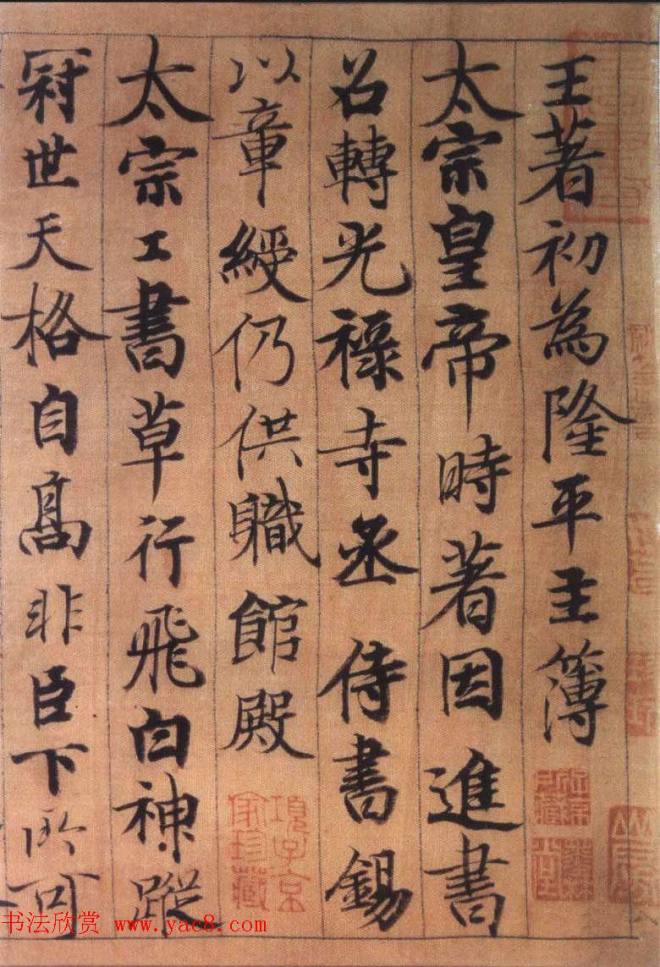 王著初為隆平主簿
太宗皇帝時著因進書
召轉光祿寺丞侍書錫
以章綬仍供職館殿
太宗工書草行飛白神蹤
冠世天格自高非臣下所可
項子京
家珍藏
书法欣赏 www.yac8.com